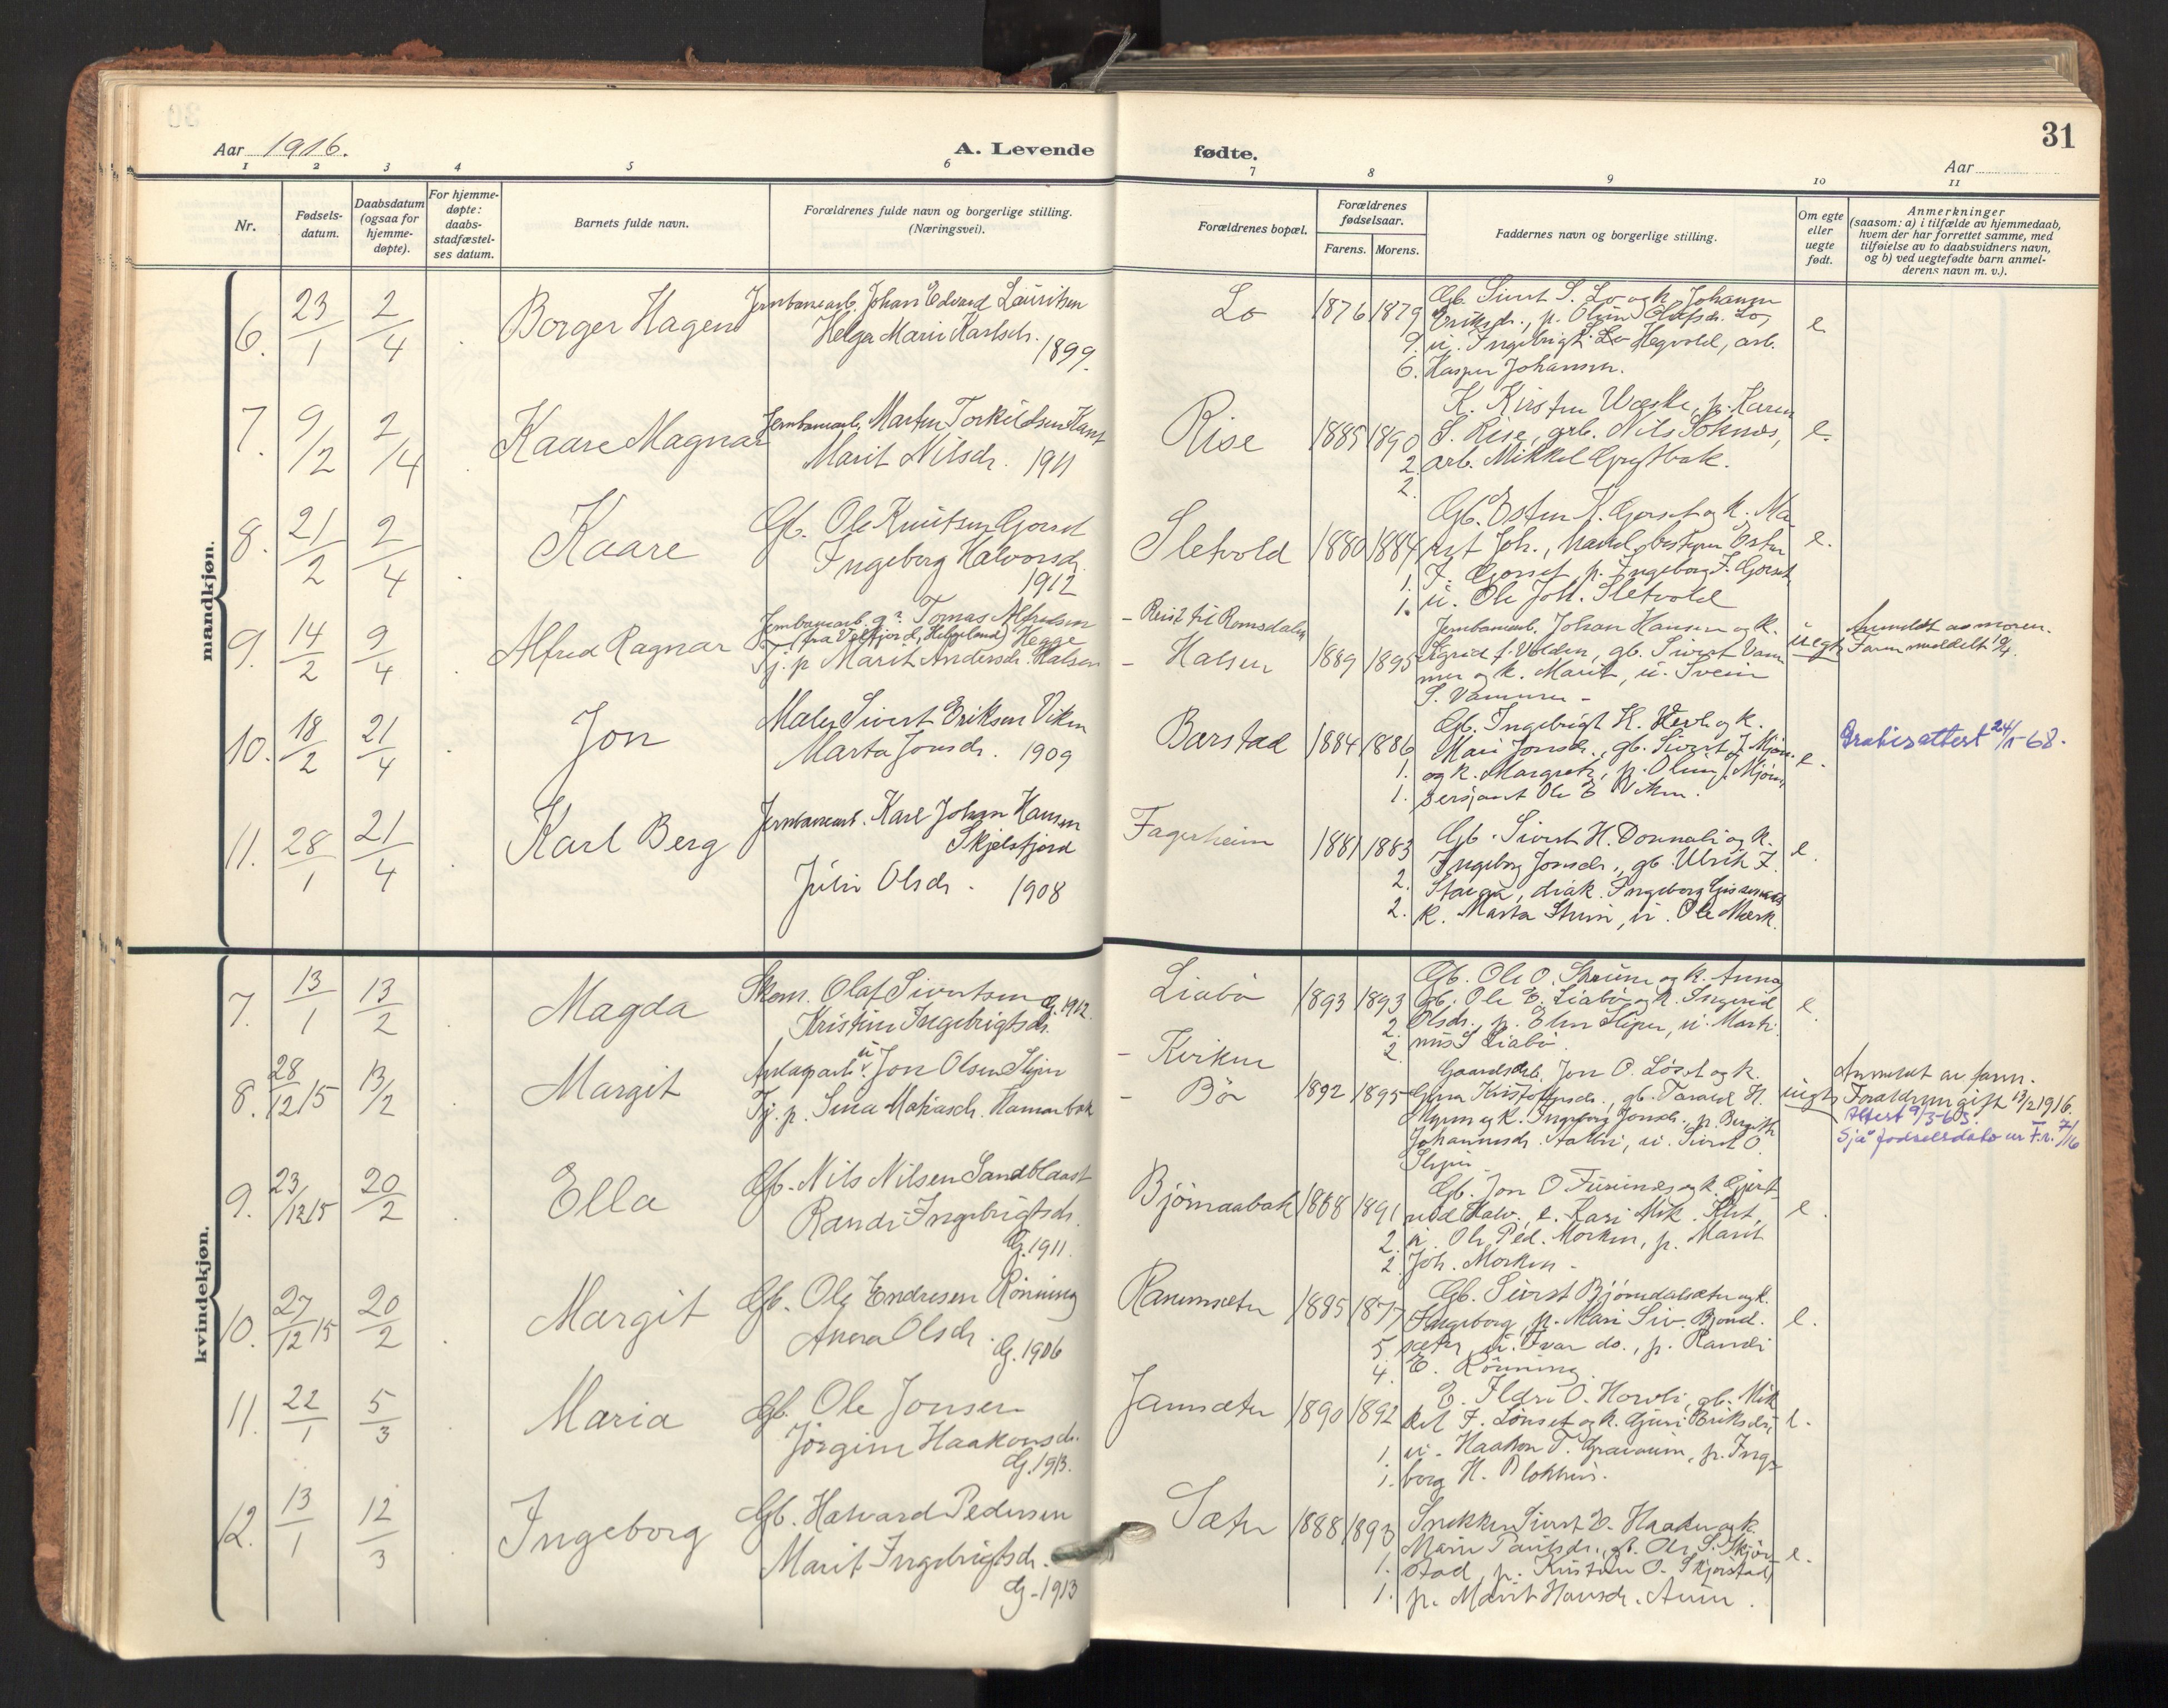 Aar 1916.
A. Levende
fødte.
31
Aar
1 2 3 4 5 6 7 8 9 10 11
Nr.
Fødsels-
datum.
Daabsdatum
(ogsaa for
hjemme-
døpte).
For hjemme-
døpte:
daabs-
stadfæstel-
ses datum.
Barnets fulde navn.
Forældrenes fulde navn og borgerlige stilling.
(Næringsvei).
Forældrenes bopæl.
Forældrenes
fødselsaar.
Farens. Morens.
Faddernes navn og borgerlige stilling.
Om egte
eller
uegte
født.
Anmerkninger
(saasom: a) i tilfælde av hjemmedaab,
hvem der har forrettet samme, med
tilføielse av to daabsvidners navn,
og b) ved uegtefødte barn anmel-
derens navn m. v.).
mandkjøn.
6. 23/1 2/4 Borger Hagen
Jernbanearb. Johan Edvard Lauritsen
Helga Marie Karlsdr. 1899.
Lo 1876 1879
Gb. Sivert S. Lo og k. Johanna
Eriksdr., p. Oline Olufsdr. Lo,
9. u. Ingebrigt Hegvold, arb.
6. Kasper Johansen.
e
7. 9/2 2/4 Kaare Magnar
Jernbanearb. Marten Torkildsen
Marit Nilsdr. 1911
Rise 1885 1890
K. Kirsten Wæske, p. Karen
S. Rise, arb. Nils Soknes,
2. arb. Mikkel
2.
e.
8. 21/2 2/4 Kaare
Gb. Ole Knutsen Gorset
Ingeborg Halvorsdr.
1912
Sletvold 1880 1884
Gb. Esten K. Gorset og k. Ma-
rit Joh., handelsbestyrer Esten
1. F. Gorset, p. Ingeborg F. Gorset
1. u. Ole Joh. Sletvold
e.
9. 14/2 9/4 Alfred Ragnar
Jernbanearb. g. Tomas Alfredsen
(fra Velfjord, Helgeland) Hegge
Tj. p. Marit Andersdr. Halsen
- Reist til Romsdalen
- Halsen 1889 1895
Jernbanearb. Johan Hansen og k.
Sigrid f. Volden, gb. Sivert Vam-
mer og k. Marit, u. Svein
S. Vammer -
uegte
Anmeldt av moren.
Faren meddelt
10. 18/2 21/4 Jon
Maler Sivert Eriksen Viken
Marta Jonsdr. 1909
Barstad 1884 1886
Gb. Ingebrigt H. og k.
Mari Jonsdr., gb. Sivert J. Mjøen
1. og k. Margrete, p. Oline J. Mjøen,
1. sersjant Ole E. Viken.
e.
Gratisattest 24/5-68.
11. 28/1 21/4 Karl Berg
Jernbanearb. Karl Johan Hansen
Skjelsfjord
Julie Olsdr. 1908
Fagerheim 1881 1883
Gb. Sivert H. Donnali og k.
Ingeborg Jonsdr., gb. Ulrik F.
2. diak. Ingeborg
2. k. Marta Stuen, u. Ole Mærk.
e.
kvindekjøn.
7. 13/1 13/2 Magda
Skom. Olaf Sivertsen G. 1912.
Kristine Ingebrigtsdr.
Liabø 1893 1893
Gb. Ole O. og k. Anna
Gb. Ole E. Liabø og k. Ingerid
2. Olsdr., p. Elen Sliper, u. Marti-
2. nus S. Liabø.
e
8. 28/12 15 13/2 Margit
Anlagsarb. u. Jon Olsen Sliper
Tj. p. Sina Matiasdr. Hamarbak
- Kvikne
- Bør 1892 1895
Gaardarb. Jon O. Løset og k.
Gura Kristoffersdr., gb. Tarald H.
Myren og k. Ingeborg Jonsdr., p. Bergitte
Johannesdr. , u. Sivert O.
Slipir
uegte
Anmeldt av faren.
Forældrene gift 13/2 1916.
Attest 9/3-63.
Sjå fødselsdato
9. 23/12 15 20/2 Ella
Gb. Nils Nilsen Sandblaast
Randi Ingebrigtsdr.
G. 1911.
Bjørnaabak 1868 1891
Gb. Jon O. Furunes og k. Gjert-
rud Halv., e. Kari Mik.
2. u. Ole Ped. Morken, p. Marit
2. Joh. Morken -
e.
10. 27/12 15 20/2 Margit
Gb. Ole Endresen Rønning
Anna Olsdr. G. 1906
Ranemsæter 1885 1877
Gb. Sivert Bjørndalsæter og k.
Ingeborg, p. Mari Siv. Bjønd.
5. sæter, u. Ivar do., p. Randi
4. E. Rønning.
e.
11. 22/1 5/3 Maria
Gb. Ole Jonsen
Jørgine Haakonsdr.
G. 1913.
Jamsæter 1890 1892
E. Ildri O. Horvli, gb. Mik-
kel F. Lønset og k. Guri Eriksdr.,
1 u. Haakon T. Graaum, p. Inge-
1. borg H. Blokhus.
e.
12. 13/1 12/3 Ingeborg
Gb. Halvard Pedersen
Marit Ingebrigtsdr.
G. 1913
Sæter 1888 1893
Snekker Sivert E. Haaker og k.
Marie Paulsdr., gb. Ole S. Skjør-
1. stad, p. Kristine O. Skjørstad,
1. p. Marit Hansdr. Aune.
e.